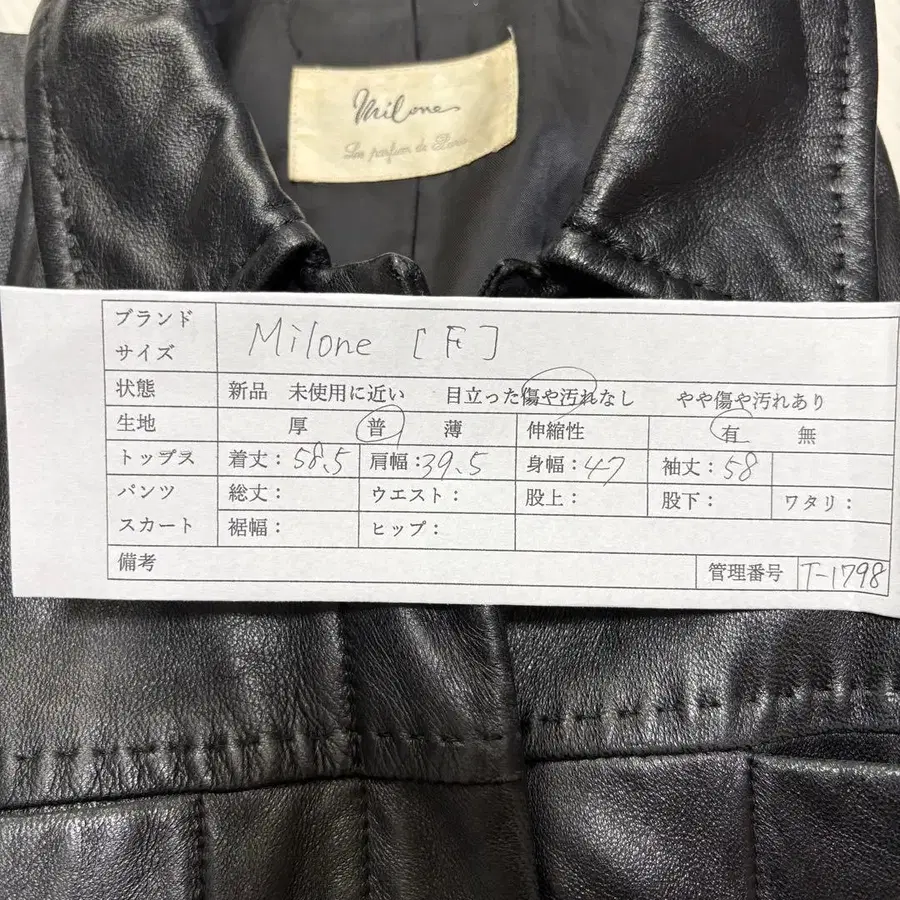 Milone
Les parfum de Paris
ブランド
サイズ
Milone [F]
状態 新品 未使用に近い 目立った傷や汚れなし やや傷や汚れあり
生地 厚 普 薄 伸縮性 有 無
トップス 着丈：58.5 肩幅：39.5 身幅：47 袖丈：58
パンツ 総丈： ウエスト： 股上： 股下： ワタリ：
スカート 裾幅： ヒップ：
備考 管理番号 T-1798